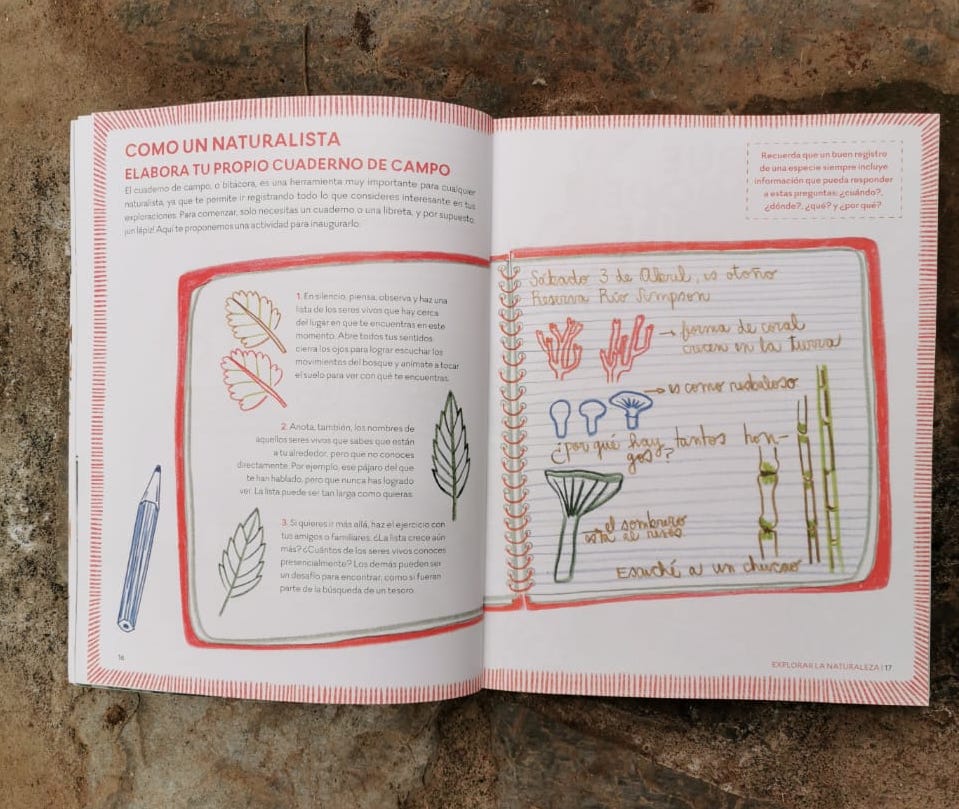 COMO UN NATURALISTA
ELABORA TU PROPIO CUADERNO DE CAMPO
El cuaderno de campo, o bitácora, es una herramienta muy importante para cualquier
naturalista, ya que te permite ir registrando todo lo que consideres interesante en tus
exploraciones. Para comenzar, solo necesitas un cuaderno o una libreta, y por supuesto
¡un lápiz! Aquí te proponemos una actividad para inaugurarlo.
1. En silencio, piensa, observa y haz una
lista de los seres vivos que hay cerca
del lugar en que te encuentras en este
momento. Abre todos tus sentidos,
cierra los ojos para lograr escuchar los
movimientos del bosque y anímate a tocar
el suelo para ver con qué te encuentras.
2. Anota, también, los nombres de
aquellos seres vivos que sabes que están
a tu alrededor, pero que no conoces
directamente. Por ejemplo, ese pájaro del que
te han hablado, pero que nunca has logrado
ver. La lista puede ser tan larga como quieras.
3. Si quieres ir más allá, haz el ejercicio con
tus amigos o familiares. ¿La lista crece aún
más? ¿Cuántos de los seres vivos conoces
presencialmente? Los demás pueden ser
un desafío para encontrar, como si fueran
parte de la búsqueda de un tesoro.
16
Recuerda que un buen registro
de una especie siempre incluye
información que pueda responder
a estas preguntas: ¿cuándo?,
¿dónde?, ¿qué? y ¿por qué?
Sábado 3 de Abril, es otoño
Reserva Río Simpson
forma de coral
crecen en la tierra
es como resbaloso
¿por qué hay tantos hon-
gos?
el sombrero
está al revés
Escuché a un chucao
EXPLORAR LA NATURALEZA | 17